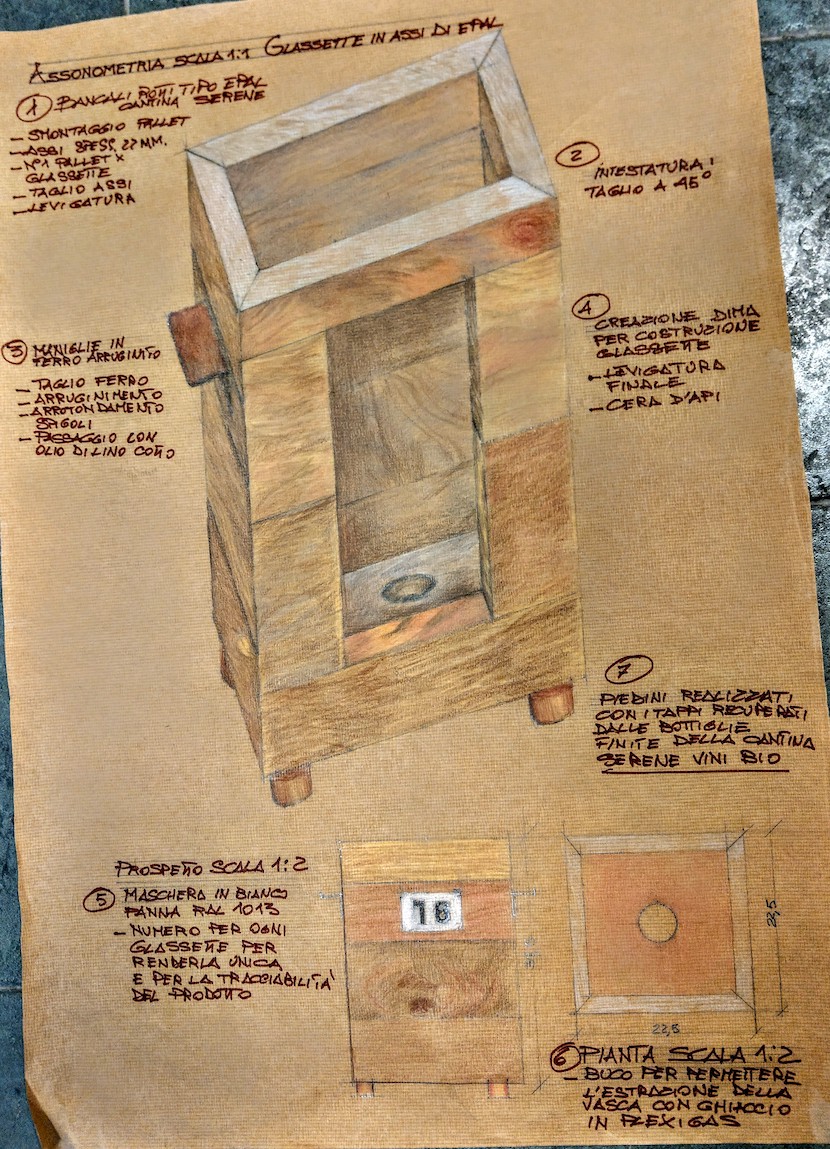 ASSONOMETRIA SCALA 1:1 GLASSETTE IN ASSI DI EPAL
1 BANCALI ROTTI TIPO EPAL
CANTINA SERENE
- SMONTAGGIO PALLET
- ASSI SPESS. 22 MM.
- N°1 PALLET X
GLASSETTE
- TAGLIO ASSI
- LEVIGATURA
2 INTESTATURA:
TAGLIO A 45°
3 MANIGLIE IN
FERRO ARRUGINITO
- TAGLIO FERRO
- ARRUGINIMENTO
- ARROTONDAMENTO
SPIGOLI
- PASSAGGIO CON
OLIO DI LINO COTTO
4 CREAZIONE DIMA
PER COSTRUZIONE
GLASSETTE
- LEVIGATURA
FINALE
- CERA D'API
7
PIEDINI REALIZZATI
CON I TAPPI RECUPERATI
DALLE BOTTIGLIE
FINITE DELLA CANTINA
SERENE VINI BIO
PROSPETTO SCALA 1:2
5 MASCHERA IN BIANCO
PANNA RAL 1013
- NUMERO PER OGNI
GLASSETTE PER
RENDERLA UNICA
E PER LA TRACCIABILITA'
DEL PRODOTTO
16
22,5
22,5
6 PIANTA SCALA 1:2
- BUCO PER PERMETTERE
L'ESTRAZIONE DELLA
VASCA CON GHIACCIO
IN PLEXIGAS